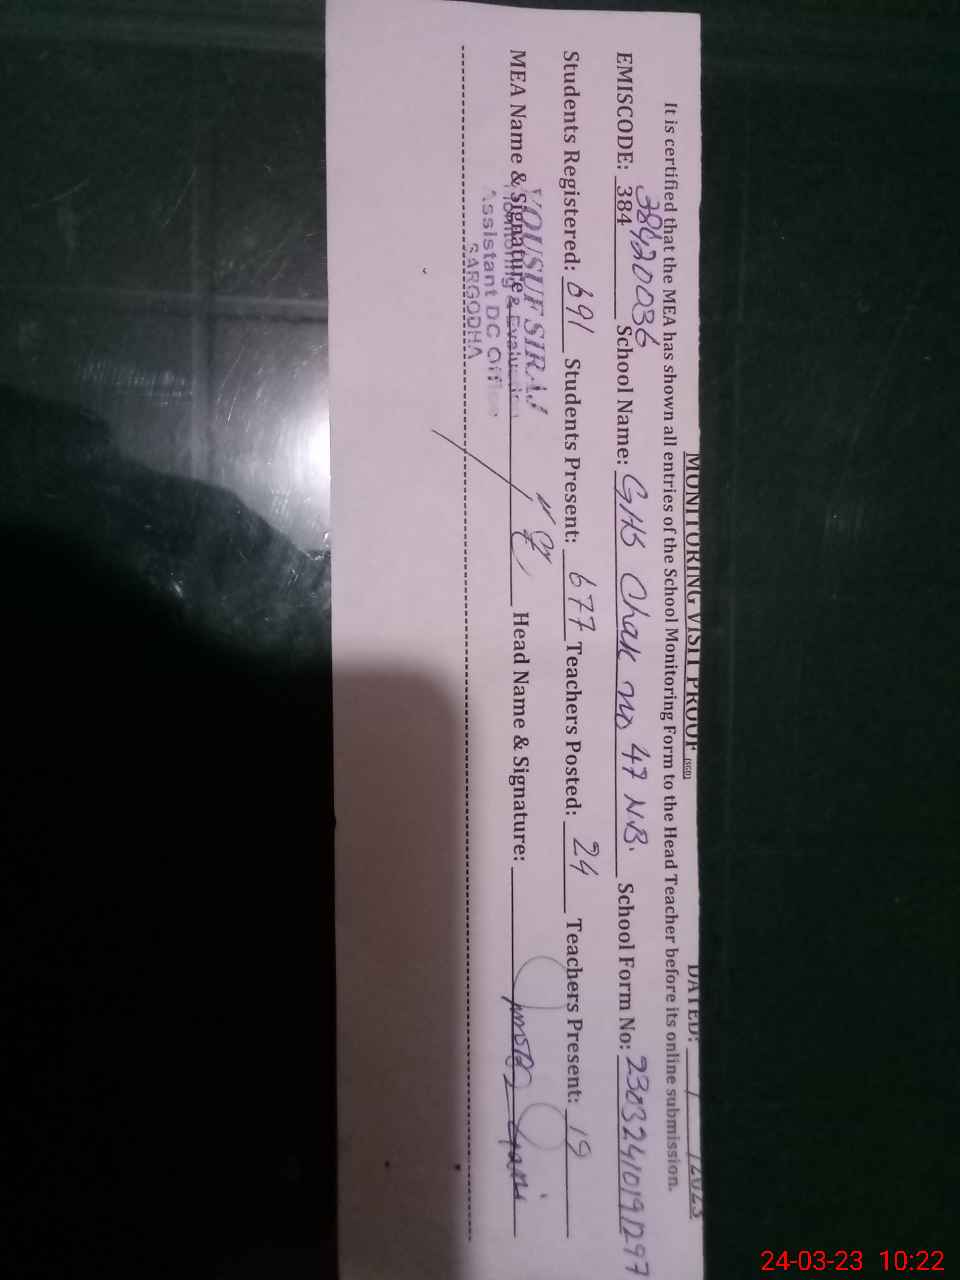 MONITORING VISIT PROOF (SGD) DATED: ___/___/2023
It is certified that the MEA has shown all entries of the School Monitoring Form to the Head Teacher before its online submission.
EMISCODE: 384 38420036 School Name: GHS Chak no 47 N.B. School Form No: 23032410191297
Students Registered: 691 Students Present: 677 Teachers Posted: 24 Teachers Present: 19
MEA Name & Signature: Head Name & Signature:
YOUSUF SIRAJ
Monitoring & Evaluation
Assistant DC Office
SARGODHA
24-03-23 10:22